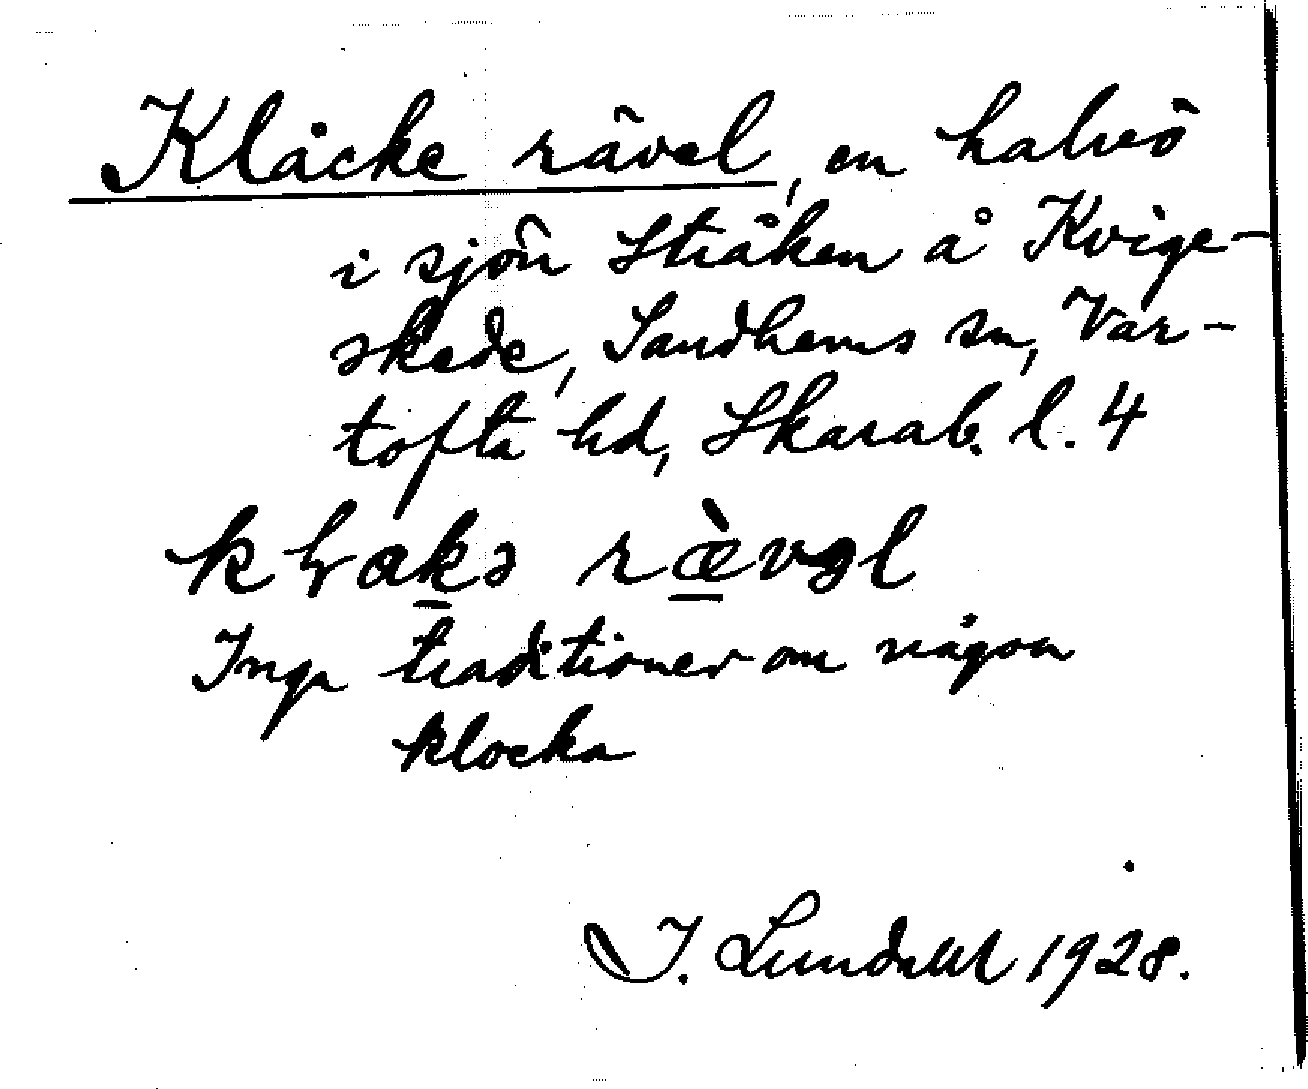 Klåcke rävel, en halvö
i sjön Stråken å Kvige-
skede, Sandhems sn, Var-
tofta hd, Skarab. l. 4
rævəl
Inga traditioner om någon
klocka
I. Lundahl 1928.